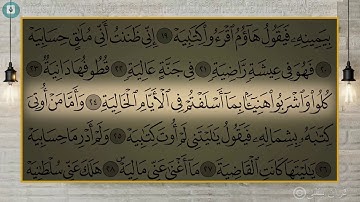 بِيَمِينِهِۦ فَيَقُولُ هَآؤُمُ ٱقۡرَءُواْ كِتَٰبِيَهۡ ١٩ إِنِّي ظَنَنتُ أَنِّي مُلَٰقٍ حِسَابِيَهۡ
٢٠ فَهُوَ فِي عِيشَةٖ رَّاضِيَةٖ ٢١ فِي جَنَّةٍ عَالِيَةٖ ٢٢ قُطُوفُهَا دَانِيَةٞ ٢٣
كُلُواْ وَٱشۡرَبُواْ هَنِيٓـَٔۢا بِمَآ أَسۡلَفۡتُمۡ فِي ٱلۡأَيَّامِ ٱلۡخَالِيَةِ ٢٤ وَأَمَّا مَنۡ أُوتِيَ
كِتَٰبَهُۥ بِشِمَالِهِۦ فَيَقُولُ يَٰلَيۡتَنِي لَمۡ أُوتَ كِتَٰبِيَهۡ ٢٥ وَلَمۡ أَدۡرِ مَا حِسَابِيَهۡ
٢٦ يَٰلَيۡتَهَا كَانَتِ ٱلۡقَاضِيَةَ ٢٧ مَآ أَغۡنَىٰ عَنِّي مَالِيَهۡۜ ٢٨ هَلَكَ عَنِّي سُلۡطَٰنِيَهۡ